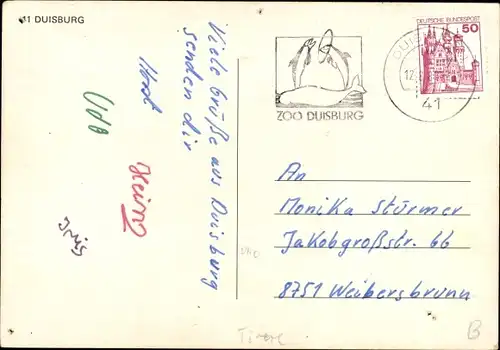 41 DUISBURG
Viele Grüße aus Duisburg
senden dir
Horst
Udo
Heinz
Iris
ZOO DUISBURG
DEUTSCHE BUNDESPOST
50
41
An
Monika Stürmer
Jakobgroßstr. 66
8751 Weibersbrunn
Tiere
B